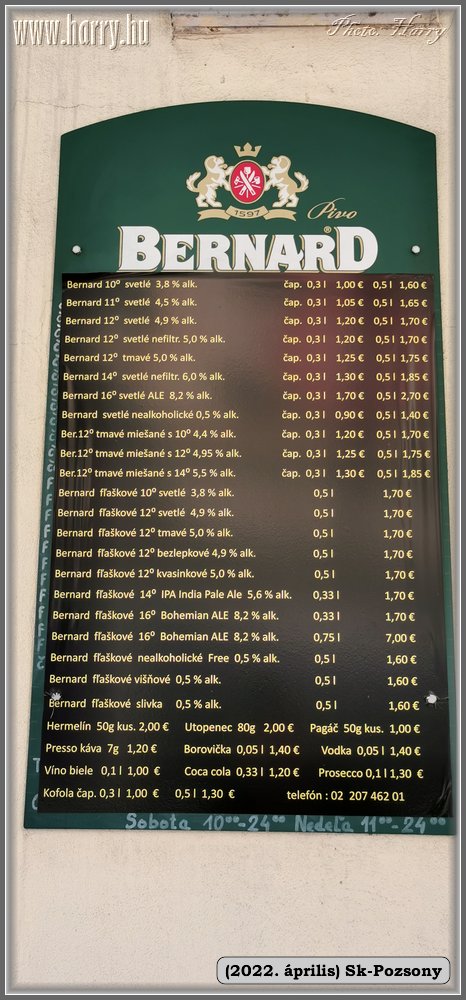 www.harry.hu
Photo: Harry
1597
Pivo
BERNARD®
Bernard 10⁰ svetlé 3,8 % alk. čap. 0,3 l 1,00 € 0,5 l 1,60 €
Bernard 11⁰ svetlé 4,5 % alk. čap. 0,3 l 1,05 € 0,5 l 1,65 €
Bernard 12⁰ svetlé 4,9 % alk. čap. 0,3 l 1,20 € 0,5 l 1,70 €
Bernard 12⁰ svetlé nefiltr. 5,0 % alk. čap. 0,3 l 1,20 € 0,5 l 1,70 €
Bernard 12⁰ tmavé 5,0 % alk. čap. 0,3 l 1,25 € 0,5 l 1,75 €
Bernard 14⁰ svetlé nefiltr. 6,0 % alk. čap. 0,3 l 1,30 € 0,5 l 1,85 €
Bernard 16⁰ svetlé ALE 8,2 % alk. čap. 0,3 l 1,70 € 0,5 l 2,70 €
Bernard svetlé nealkoholické 0,5 % alk. čap. 0,3 l 0,90 € 0,5 l 1,40 €
Ber.12⁰ tmavé miešané s 10⁰ 4,4 % alk. čap. 0,3 l 1,20 € 0,5 l 1,70 €
Ber.12⁰ tmavé miešané s 12⁰ 4,95 % alk. čap. 0,3 l 1,25 € 0,5 l 1,75 €
Ber.12⁰ tmavé miešané s 14⁰ 5,5 % alk. čap. 0,3 l 1,30 € 0,5 l 1,85 €
Bernard fľaškové 10⁰ svetlé 3,8 % alk. 0,5 l 1,70 €
Bernard fľaškové 12⁰ svetlé 4,9 % alk. 0,5 l 1,70 €
Bernard fľaškové 12⁰ tmavé 5,0 % alk. 0,5 l 1,70 €
Bernard fľaškové 12⁰ bezlepkové 4,9 % alk. 0,5 l 1,70 €
Bernard fľaškové 12⁰ kvasinkové 5,0 % alk. 0,5 l 1,70 €
Bernard fľaškové 14⁰ IPA India Pale Ale 5,6 % alk. 0,33 l 1,70 €
Bernard fľaškové 16⁰ Bohemian ALE 8,2 % alk. 0,33 l 1,70 €
Bernard fľaškové 16⁰ Bohemian ALE 8,2 % alk. 0,75 l 7,00 €
Bernard fľaškové nealkoholické Free 0,5 % alk. 0,5 l 1,60 €
Bernard fľaškové višňové 0,5 % alk. 0,5 l 1,60 €
Bernard fľaškové slivka 0,5 % alk. 0,5 l 1,60 €
Hermelín 50g kus. 2,00 € Utopenec 80g 2,00 € Pagáč 50g kus. 1,00 €
Presso káva 7g 1,20 € Borovička 0,05 l 1,40 € Vodka 0,05 l 1,40 €
Víno biele 0,1 l 1,00 € Coca cola 0,33 l 1,20 € Prosecco 0,1 l 1,30 €
Kofola čap. 0,3 l 1,00 € 0,5 l 1,30 € telefón : 02 207 462 01
Sobota 10⁰⁰-24⁰⁰ Nedeľa 11⁰⁰-24⁰⁰
(2022. április) Sk-Pozsony